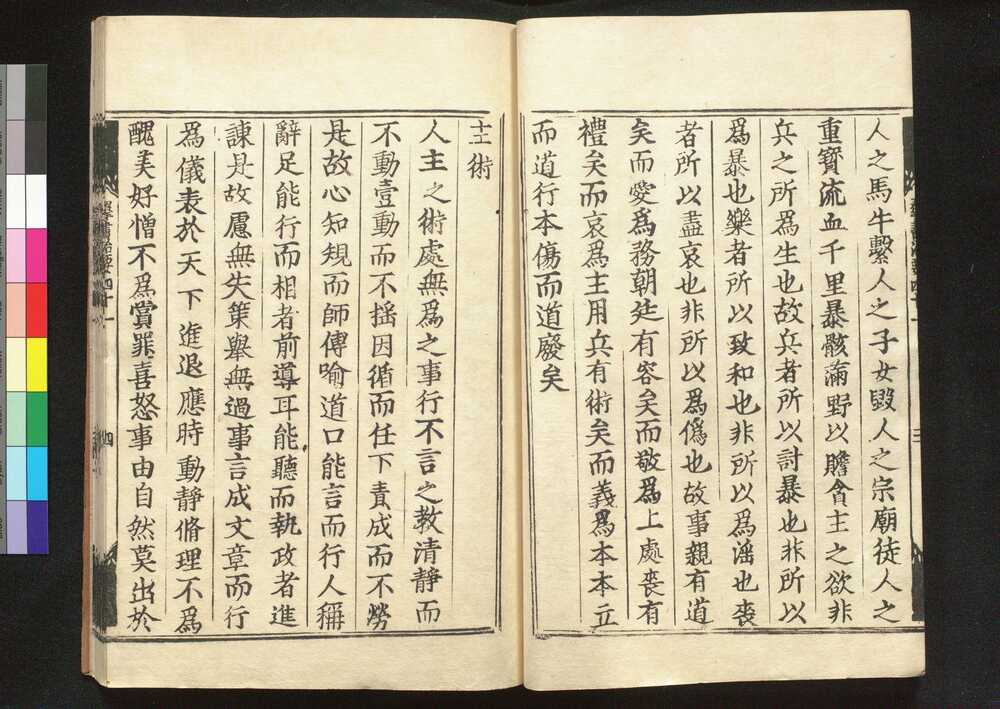 人之馬牛繫人之子女毀人之宗廟徒人之
重寳流血千里暴骸滿野以贍貪主之欲非
兵之所爲生也故兵者所以討暴也非所以
爲暴也樂者所以致和也非所以爲滛也喪
者所以盡哀也非所以爲僞也故事親有道
矣而愛爲務朝廷有容矣而敬爲上處喪有
禮矣而哀爲主用兵有術矣而義爲本本立
而道行本傷而道廢矣
主術
人主之術處無爲之事行不言之教清靜而
不動壹動而不揺因循而任下責成而不勞
是故心知規而師傅喻道口能言而行人稱
辭足能行而相者前導耳能聽而執政者進
諫是故慮無失策舉無過事言成文章而行
爲儀表於天下進退應時動靜脩理不爲
醜美好憎不爲賞罪喜怒事由自然莫出於
羣書治要四十一
四